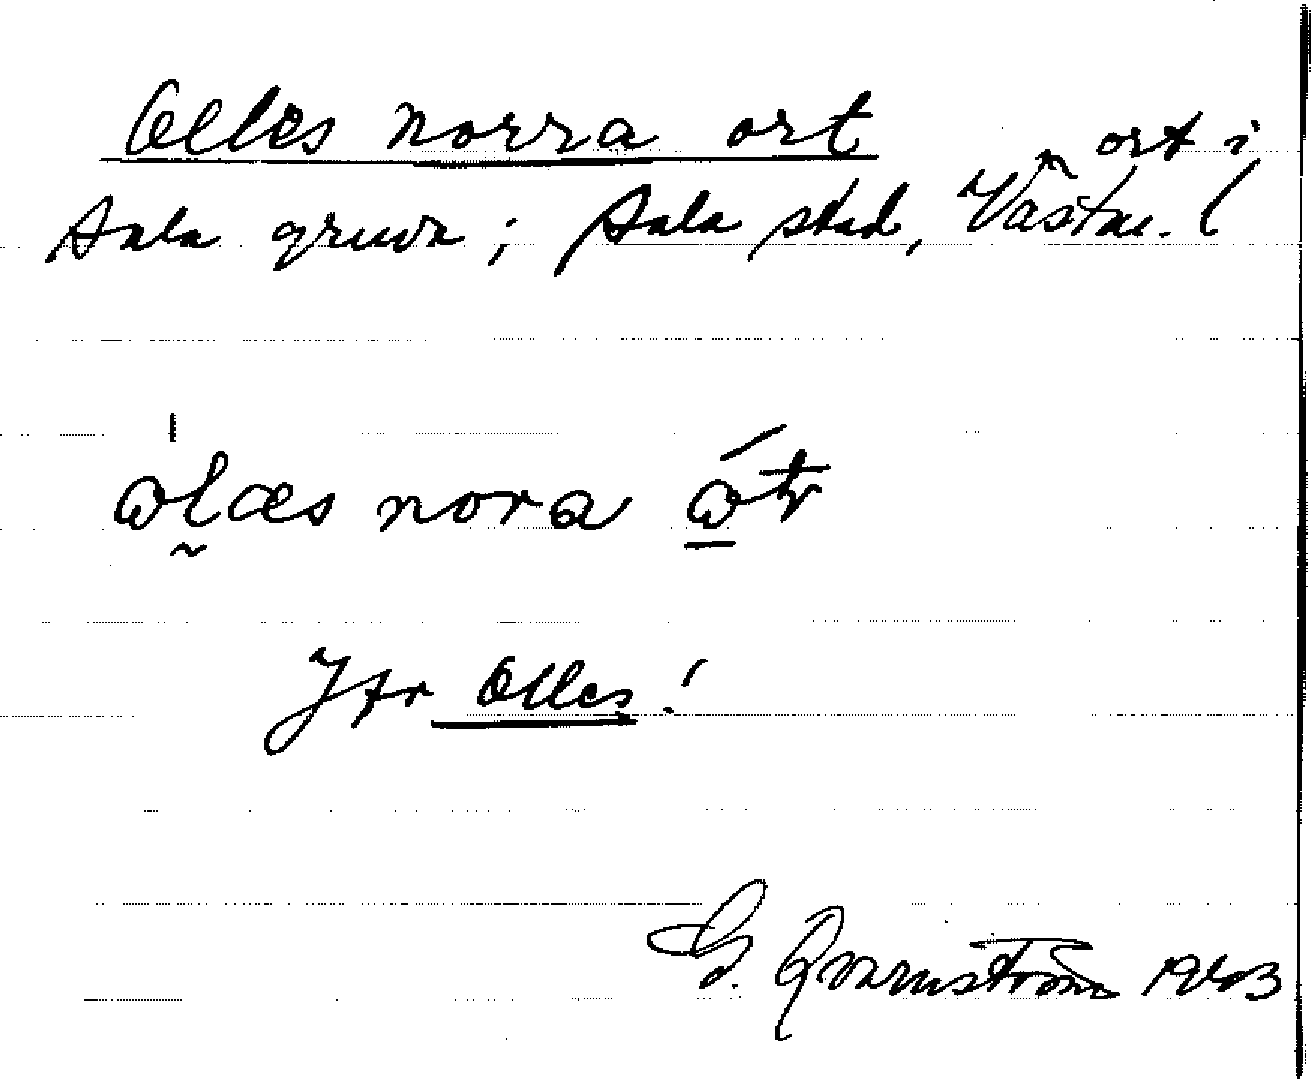 Olles norra ort ort i
Sala gruva; Sala stad, Västml.
ωlæs nora ώt
Jfr Olles!
G. Qvarnström 1943